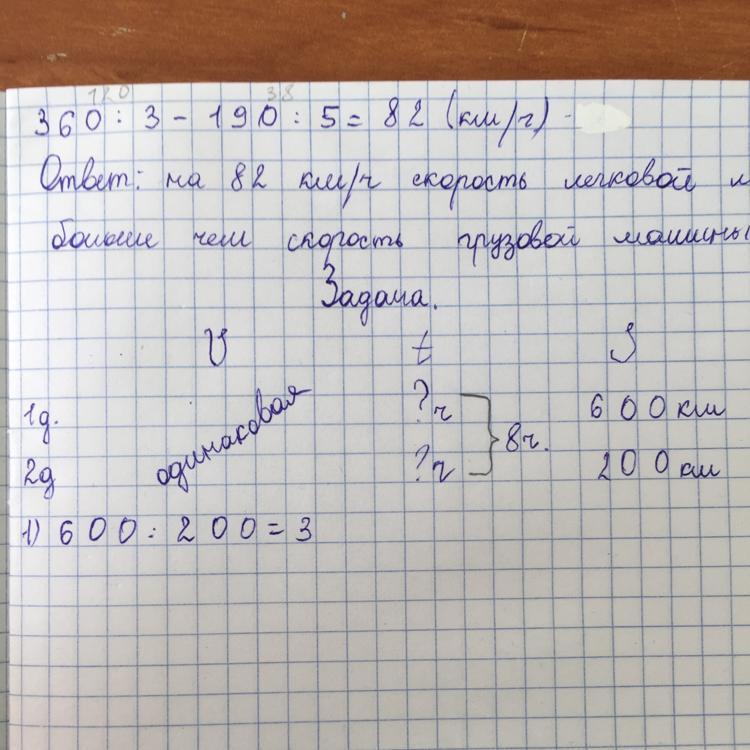 120 38
360 : 3 - 190 : 5 = 82 (км/ч)
Ответ: на 82 км/ч скорость легковой м
больше чем скорость грузовой машины
Задача.
V t S
1д. ?ч 600 км
одинаковая 8ч.
2д ?ч 200 км
1) 600 : 200 = 3